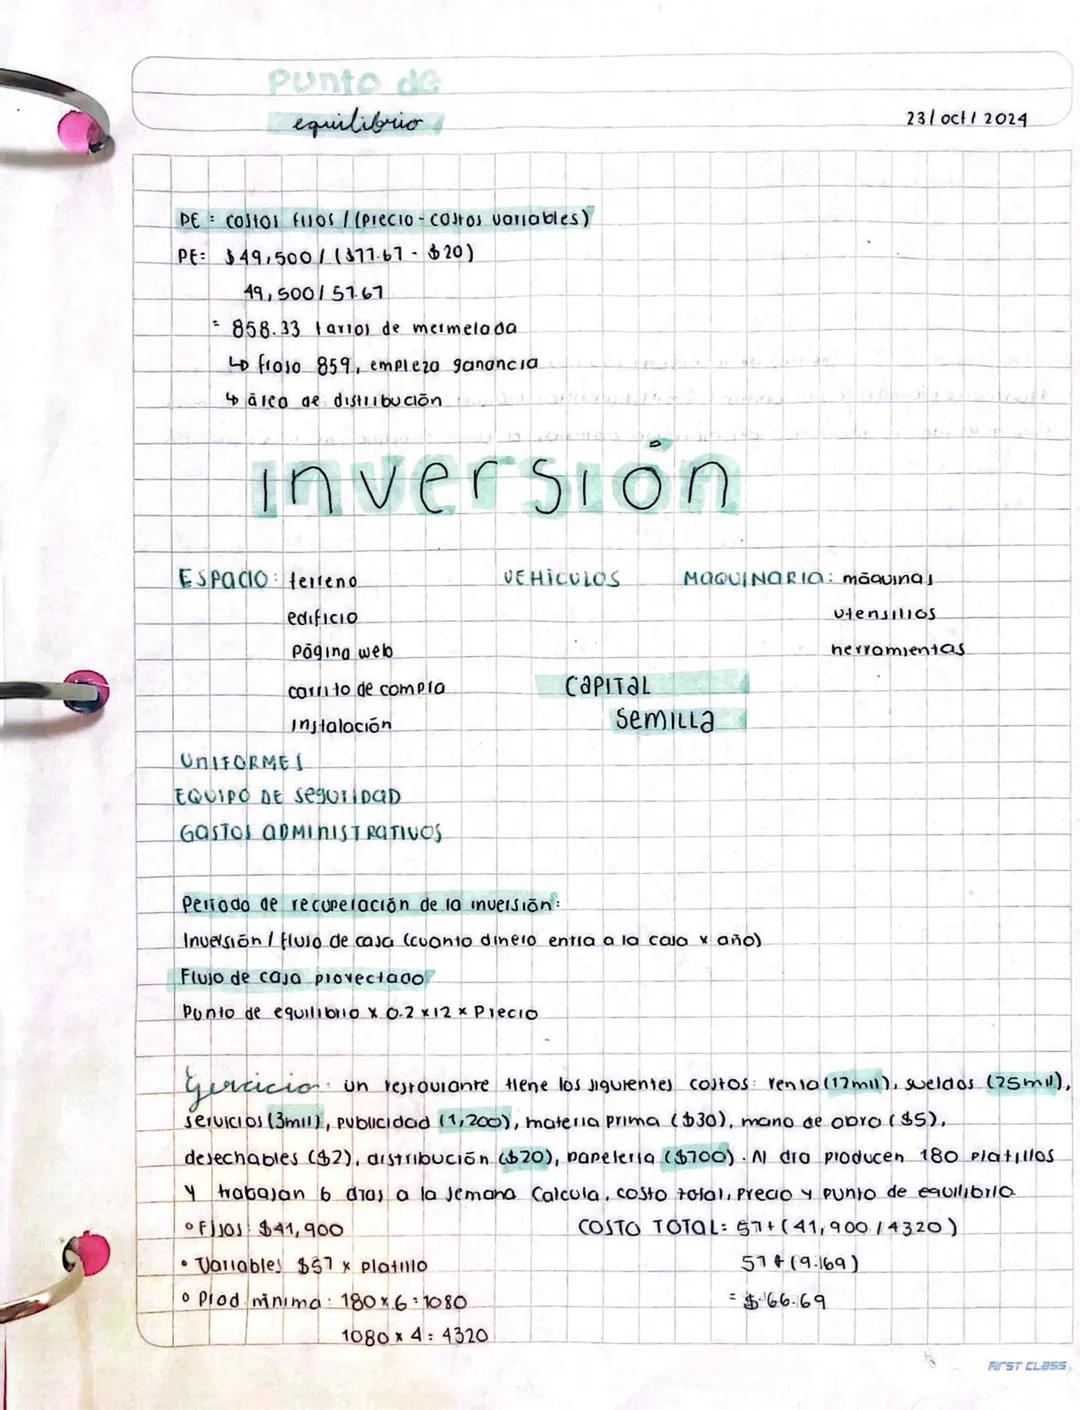 Punto de
equilibrio
23/oct/2024
PE = costos fijos / (Precio - costos variables)
PE= $49,500 / ($77.67 - $20)
49,500 / 57.67
= 858.33 tarros de mermelada
↳ frasco 859, empieza ganancia
↳ área de distribución
inversión
ESPACIO: terreno
VEHÍCULOS
MAQUINARIA: máquinas
edificio
utensilios
Página web
herramientas
carrito de compra
CAPITAL
Instalación
SEMILLA
UNIFORMES
EQUIPO DE SEGURIDAD
GASTOS ADMINISTRATIVOS
Periodo de recuperación de la inversión:
Inversión / flujo de caja (cuanto dinero entra a la caja x año)
Flujo de caja proyectado
Punto de equilibrio x 0.2 x 12 x Precio
Ejercicio: un restaurante tiene los siguientes costos: renta (12mil), sueldos (25mil),
servicios (3mil), publicidad (1,200), materia prima ($30), mano de obra ($5),
desechables ($2), distribución ($20), papelería ($700). Al día producen 180 platillos
y trabajan 6 días a la semana. Calcula, costo total, precio y punto de equilibrio.
• Fijos: $41,900
COSTO TOTAL: 57+(41,900/4320)
• Variables $57 x platillo
57+(9.169)
• Prod mínima: 180x6=1080
= $66.69
1080 x 4 = 4320
FIRST CLASS